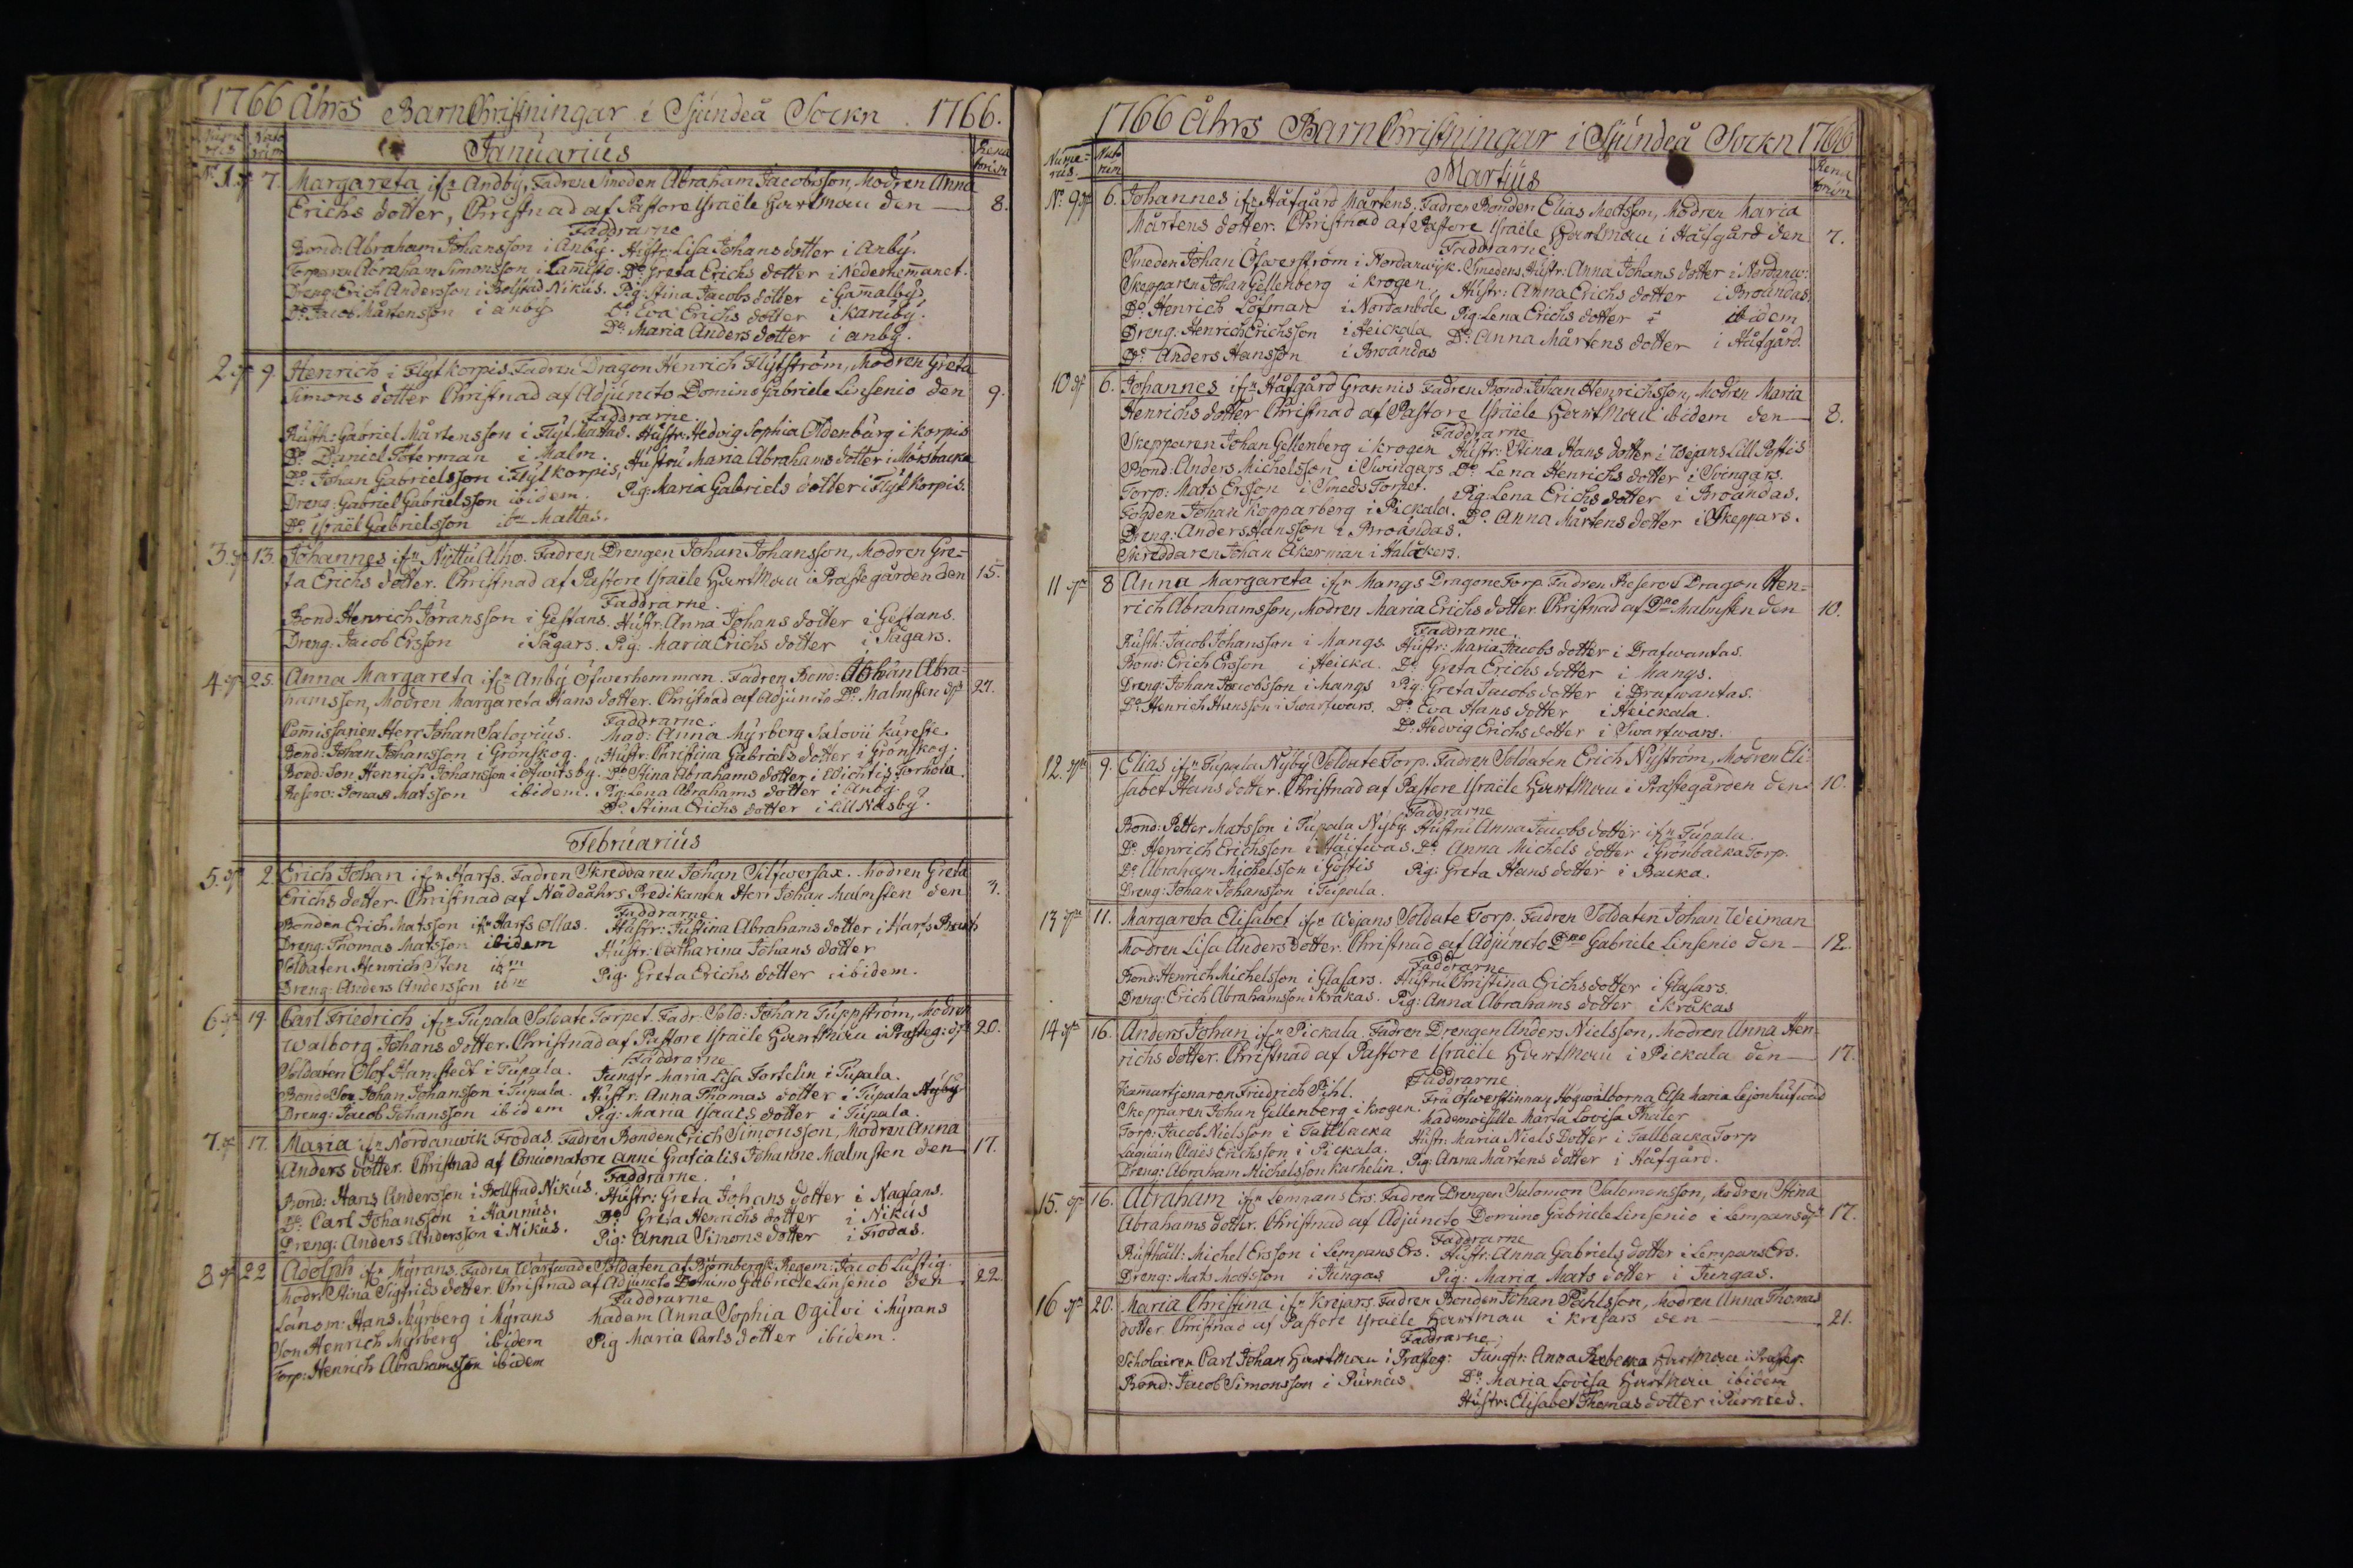 1766 Åhrs BarnChristningar i Sjúndeå Sockn . 1766.
Nume-
rus Nato
rúm Januariús Rena
torúm
N:o 1. 7. Margareta ifr: Andbÿ, Fadren Smeden Abraham Jacobsson, Modren Anna
Erichs dotter, Christnad af Pastore Israële Hartman den — 8.
Faddrarne
Bond: Abraham Johansson i Anbÿ. Hústr: Lisa Johans dotter i Anbÿ.
Torparen Abraham Simonsson i D:o Greta Erichs dotter i Nederhemanet.
Dreng Erich Andersson i Bolstad Nikús. Pig: Stina Jacobs dotter i Gamalbÿ.
D:o Jacob Mårtensson i anbÿ D:o Eva Erichs dotter i Karúbÿ.
D:o Maria Anders dotter i anbÿ.
2. 9. Henrich i Flÿt Korpis. Fadren Dragon Henrich Flÿtström, Modren Greta
Simons dotter Christnad af Adjúncto Domino Gabriele Linsenio den 9.
Faddrarne.
Rústh: Gabriel Mårtensson i Flÿt Mattas. Hústr: Hedvig Sophia Oldenbúrg i Korpis
D:o Daniel Toterman i Malm. Hústrú Maria Abrahams dotter i Morsbacka
D:o Johan Gabrielsson i Flÿt Korpis, Pig: Maria Gabriels dotter i Flÿt Korpis.
Dreng: Gabriel Gabrielsson ibidem.
D:o Israël Gabrielsson Mattas.
3. 13. Johannes ifr: Nÿttú Alho. Fadren Drengen Johan Johansson, Modren Gre-
ta Erichs dotter. Christnad af Pastore Israële Hartman i Prästegården den 15.
Faddrarne.
Bond Henrich Jöransson i Gestans. Hústr: Anna Johans dotter i Gestans.
Dreng: Jacob Ersson i Sågars. Pig: Maria Erichs dotter i Sågars.
4. 25. Anna Margareta ifr: Anbÿ Öfwerhemman. Fadren Bond: Abra-
hamsson, Modren Margareta Hans dotter. Christnad af Adjúncto D:o Malmsten 27.
Faddrarne.
Comissarien Herr Johan Salovius. Mad: Anna Mÿrberg Salovii
Bond: Johan Johansson i Grönskog. Hústr: Christina Gabriels dotter i Grönskog.
Bond: Son Henrich Johansson i D:o Stina Abrahams dotter i Wichtis
Reserv: Jonas Matsson ibidem. Pig: Lena Abrahams dotter i Anbÿ.
D:o Stina Erichs dotter i Lill Näsbÿ.
Februariús
5. 2. Erich Johan ifr: Harfs. Fadren Skreddaren Johan Silfwersax. Modren Greta
Erichs dotter. Christnad af Nådeåhrs Predikanten Herr Johan Malmsten den 3.
Faddrarne
Bonden Erich Matsson ifr: Harfs Ollas. Hústr: Jústina Abrahams dotter i Harfs
Dreng: Thomas Matsson ibidem Hústr: Catharina Johans dotter
Soldaten Henrich Sten Pig: Greta Erichs dotter ibidem.
Dreng: Anders Andersson
6. 19. Carl Friedrich ifr: Túpala Soldate Torpet. Fadr: Sold: Johan Túppström, Modren
Walborg Johans dotter. Christnad af Pastore Israële Hartman i Prästeg: 20.
Faddrarne
Soldaten Olof Hamstedt i Túpala. Jungfr Maria Lisa Fortelin i Túpala.
Bonde Son Johan Johansson i Túpala. Hústr: Anna Thomas dotter i Túpala Nÿbÿ
Dreng: Jacob Johansson ibidem Pig: Maria Isaacs dotter i Túpala.
7. 17. Maria ifr: Nordanwik Frodas. Fadren Bonden Erich Simonsson, Modren Anna
Anders dotter. Christnad af Concionatore anni Gratialis Johanne Malmsten den 17.
Faddrarne.
Bond: Hans Andersson i Bollstad Nikús. Hústr: Greta Johans dotter i Naglans.
D:o Carl Johansson i Hannús. D:o Greta Henrichs dotter i Nikús
Dreng: Anders Andersson i Nikús. Pig: Anna Simons dotter i Frodas.
8 22 Adolph ifr: Mÿrans. Fadren Wärfwade Soldaten af Björnborgs Regem: Jacob Lústig.
Modr: Stina Sigfrids dotter. Christnad af Adjúncto Domino Gabriele Linsenio den 22.
Faddrarne
Länsm: Hans Mÿrberg i Mÿrans Madam Anna Sophia Ogilwi i Mÿrans
Son Henrich Mÿrberg ibidem Pig Maria Carls dotter ibidem.
Torp: Henrich Abrahamsson ibidem
1766 Åhrs BarnChristningar i Sjúndeå Sockn 1766
Nume-
rus. Nato
rúm Martiús Rena
torúm
N:o 9. 6. Johannes ifr: Håfgård Mårtens. Fadren Bonden Elias Matsson, Modren Maria
Mårtens dotter. Christnad af Pastore Israële Hartman i Håfgård den 7.
Faddrarne.
Smeden Johan Öfwerström i Nordanwÿk. Smedens Hústr: Anna Johans dotter i Nordanw:
Skepparen Johan Gellenberg i Krogen. Hústr: Anna Erichs dotter i Broändas.
D:o Henrich Löfman i Nordanböle Pig: Lena Erichs dotter ibidem
Dreng. Henrich Erichsson i Heickala D:o Anna Mårtens dotter i Håfgård.
D:o Anders Hansson i Broändas
10 6. Johannes ifr: Håfgård Grannis Fadren Bond: Johan Henrichsson, Modren Maria
Henrichs dotter Christnad af Pastore Israële Hartman ibidem den — 8.
Faddrarne
Skepparen Johan Gellenberg i Krogen Hústr: Stina Hans dotter i Wejans Lill
Bond: Anders Michelsson i Swingars D:o Lena Henrichs dotter i Svingars.
Torp: Mats Ersson i Smeds Torpet. Pig: Lena Erichs dotter i Broändas.
Fogden Johan Kopparberg i Pickala. D:o Anna Mårtens dotter i Skeppars.
Dreng: Anders Hansson i Broändas.
Skreddaren Johan Åkerman i Halåkers.
11 8 Anna Margareta ifr: Mangs Dragone Torp. Fadren Reserv Dragon Hen-
rich Abrahamsson, Modren Maria Erichs dotter. Christnad af D:no Malmsten den 10.
Faddrarne.
Rústh: Jacob Johansson i Mangs. Hústr: Maria Jacobs dotter i Drafwantas.
Bond: Erich Ersson i Heicka. D:o Greta Erichs dotter i Mangs.
Dreng: Johan Jacobsson i Mangs Pig: Greta Jacobs dotter i Drafwantas.
D:o Henrich Hansson i Swartwars. D:o Eva Hans dotter i Heickala.
D:o Hedvig Erichs dotter i Swartwars.
12. 9. Elias ifr: Túpala Nÿbÿ Soldate Torp. Fadren Soldaten Erich Nÿström, Modren Eli-
sabet Hans dotter. Christnad af Pastore Israële Hartman i Prästegården den. 10.
Faddrarne
Bond: Petter Matsson i Túpala Nÿbÿ. Hústrú Anna Jacobs dotter ifr: Túpala.
D:o Henrich Erichsson i D:o Anna Michels dotter i Grönbacka Torp.
D:o Abraham Michelsson i Göstis Pig: Greta Hans dotter i Backa.
Dreng: Johan Johansson i Túpala.
13 11. Margareta Elisabet ifr: Wejans Soldate Torp. Fadren Soldaten Johan Weiman
Modren Lisa Anders dotter. Christnad af Adjúncto D:no Gabriele Linsenio den — 12.
Faddrarne
Bond: Henrich Michelsson i Glasars. Hústrú Christina Erichs dotter i Glasars.
Dreng: Erich Abrahamsson i Kråkas. Pig: Anna Abrahams dotter i Kråkas
14 16. Anders Johan ifr: Pickala. Fadren Drengen Anders Nielsson, Modren Anna Hen-
richs dotter. Christnad af Pastore Israële Hartman i Pickala den — 17.
Faddrarne
Kammartjenaren Friedrich Pihl. Frú Öfwerstinnan Högwälborna Elsa Maria Lejonhúfwúd
Skepparen Johan Gellenberg i Krogen. Mademoiselle Marta Lovisa Thaler
Torp: Jacob Nielsson i Tallbacka Hústr: Maria Niels Dotter i Tallbacka Torp
Laquain Claës Erichsson i Pickala. Pig: Anna Mårtens dotter i Håfgård.
Dreng: Abraham Michelsson Kurkelin.
15. 16. Abraham ifr: Lempans Ers. Fadren Drengen Salomon Salomonsson, Modren Stina
Abrahams dotter. Christnad af Adjúncto Domino Gabriele Linsenio i Lempans 17.
Faddrarne
Rústhåll: Michel Ersson i Lempans Ers. Hústr: Anna Gabriels dotter i Lempans Ers.
Dreng: Mats Matsson i Jungas Pig: Maria Mats dotter i Jungas.
16 20. Maria Christina ifr: Krejars. Fadren Bonden Johan Påhlsson, Modren Anna Thomas
dotter. Christnad af Pastore Israële Hartman i Krejars den — 21.
Faddrarne.
Scholairen Carl Johan Hartman i Prästeg: Jungfr: Anna Rebecka Hartman i Prästeg:
Bond: Jacob Simonsson i Púrnús D:o Maria Lovisa Hartman ibidem
Hústr: Elisabet Thomas dotter i Púrnús.